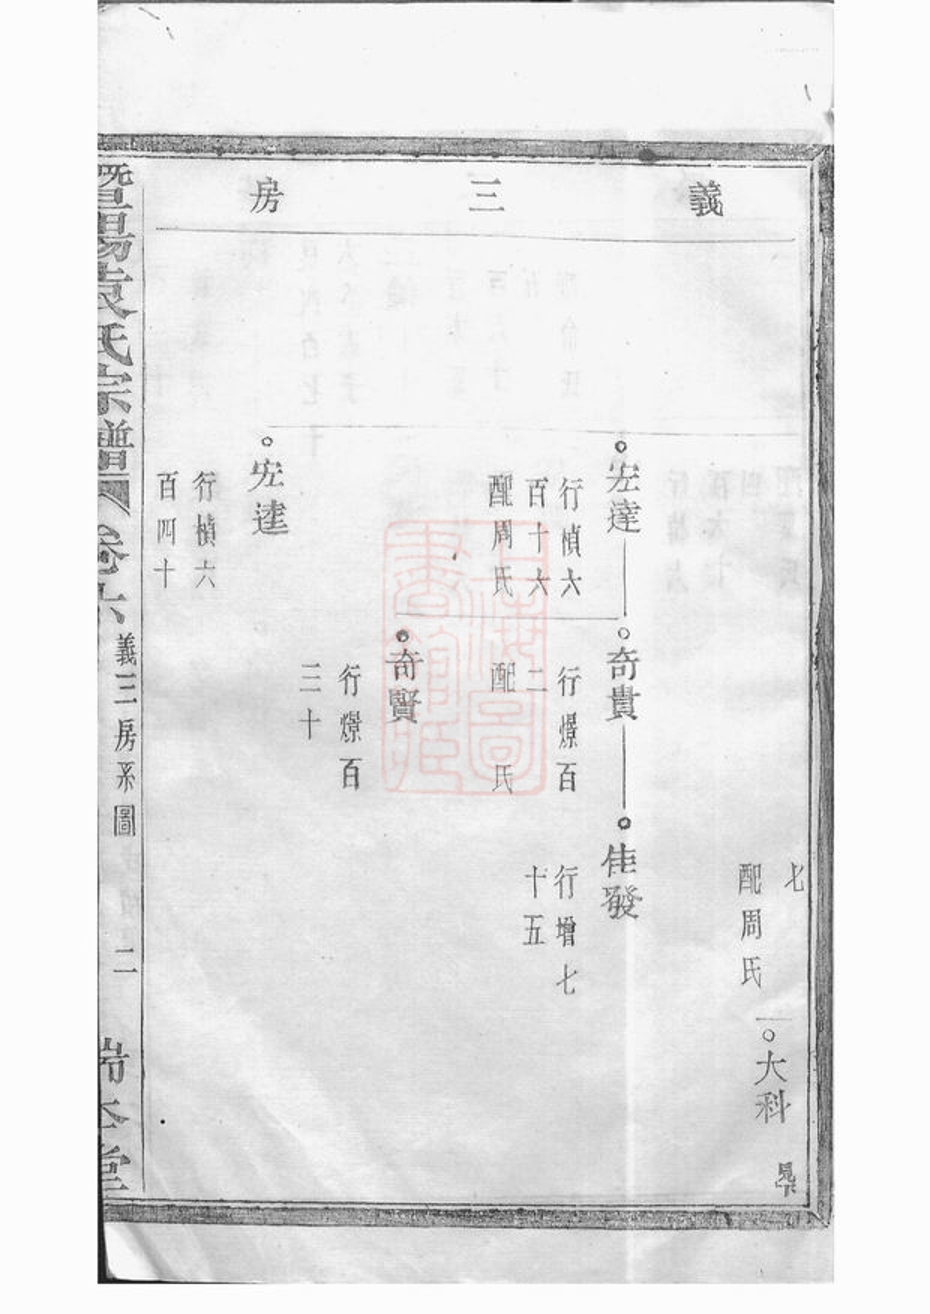 義三房
七
配周氏
大科
宏達
行楨六
百十六
配周氏
奇貴
行燝百
二
配 氏
佳發
行增七
十五
奇賢
行燝百
三十
宏逵
行楨六
百四十
暨陽袁氏宗譜
卷六
義三房系圖
二
堂